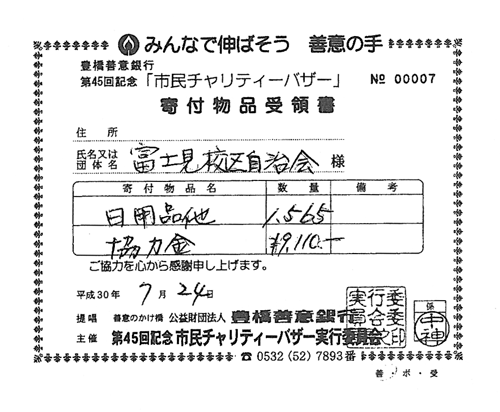 みんなで伸ばそう 善意の手
豊橋善意銀行
第45回記念「市民チャリティーバザー」 № 00007
寄付物品受領書
住所
氏名又は団体名 富士見校区自治会 様
寄付物品名 数量 備考
日用品他 1,565
協力金 ¥9,110.-
ご協力を心から感謝申し上げます。
平成30年 7月 24日
提唱 善意のかけ橋 公益財団法人 豊橋善意銀行
主催 第45回記念 市民チャリティーバザー実行委員会
実行委員会之印
係 中神
☎ 0532 (52) 7893番
善・ボ・受